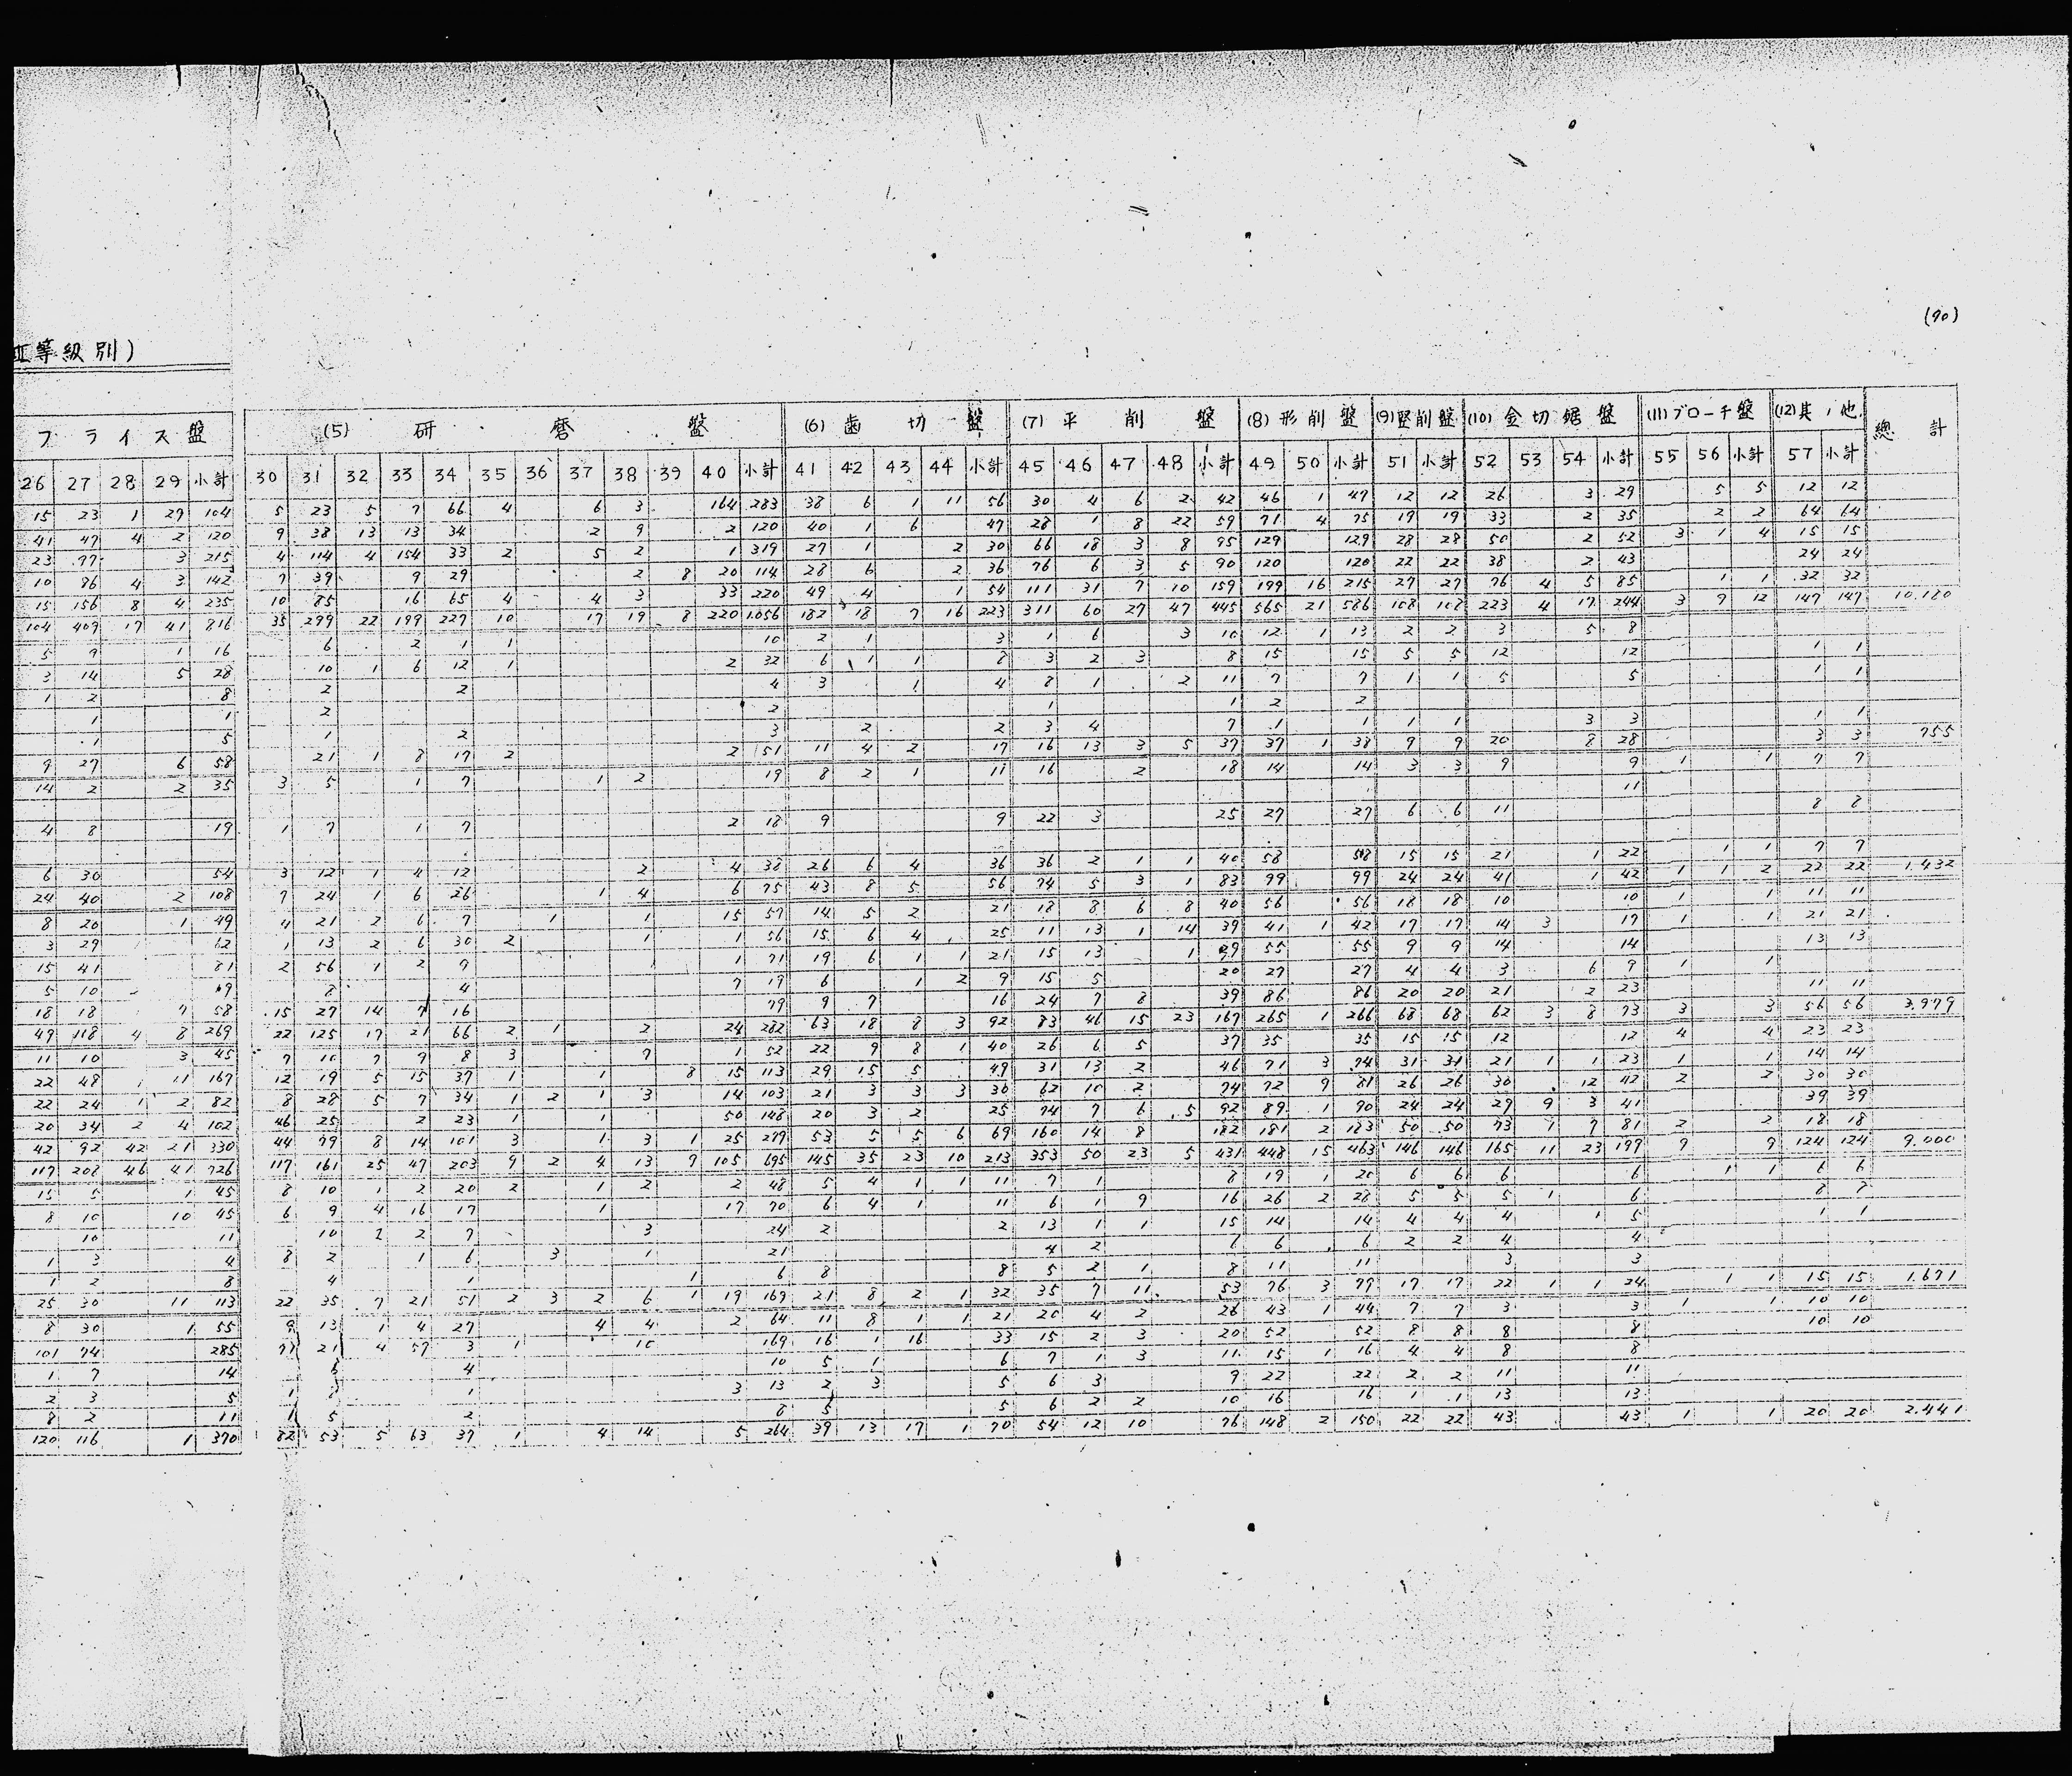 (90)
Ⅲ等級別)
フライス盤 (5) 研磨盤 (6) 歯切盤 (7) 平削盤 (8) 形削盤 (9) 竪削盤 (10) 金切鋸盤 (11) ブローチ盤 (12) 其ノ他 總計
26 27 28 29 小計 30 31 32 33 34 35 36 37 38 39 40 小計 41 42 43 44 小計 45 46 47 48 小計 49 50 小計 51 小計 52 53 54 小計 55 56 小計 57 小計
15 23 1 29 104 5 23 5 7 66 4 6 3 164 283 38 6 1 11 56 30 4 6 2 42 46 1 47 12 12 26 3 29 5 5 12 12
41 47 4 2 120 9 38 13 13 34 2 9 2 120 40 1 6 47 28 1 8 22 59 71 4 75 19 19 33 2 35 2 2 64 64
23 97 3 215 4 114 4 154 33 2 5 2 1 319 27 1 2 30 66 18 3 8 95 129 129 28 28 50 2 52 3 1 4 15 15
10 86 4 3 142 7 39 9 29 2 8 20 114 28 6 2 36 76 6 3 5 90 120 120 22 22 38 2 43 24 24
15 156 8 4 235 10 85 16 65 4 4 3 33 220 49 4 1 54 111 31 7 10 159 199 16 215 27 27 76 4 5 85 1 1 32 32
104 409 17 41 816 35 299 22 199 227 10 17 19 8 220 1.056 182 18 7 16 223 311 60 27 47 445 565 21 586 108 108 223 4 17 244 3 9 12 147 147 10.120
5 9 1 16 6 2 1 1 10 2 1 3 1 6 3 10 12 1 13 2 2 3 5 8
3 14 5 28 10 1 6 12 1 2 32 6 1 1 8 3 2 3 8 15 15 5 5 12 12 1 1
1 2 8 2 2 4 3 1 4 8 1 2 11 7 7 1 1 5 5 1 1
1 1 2 2 1 1 2 2
1 5 1 2 3 2 2 3 4 7 1 1 1 1 3 3 1 1
9 27 6 58 21 1 8 17 2 2 51 11 4 2 17 16 13 3 5 37 37 1 38 9 9 20 8 28 3 3 755
14 2 2 35 3 5 1 7 1 2 19 8 2 1 11 16 2 18 14 14 3 3 9 9 1 1 7 7
4 8 19 1 7 1 7 2 18 9 9 22 3 25 27 27 6 6 11 11 8 8
6 30 54 3 12 1 4 12 2 4 38 26 6 4 36 36 2 1 1 40 58 58 15 15 21 1 22 1 1 7 7
24 40 2 108 7 24 1 6 26 1 4 6 75 43 8 5 56 74 5 3 1 83 99 99 24 24 41 1 42 1 1 2 22 22 1.432
8 20 1 49 4 21 2 6 7 1 1 15 57 14 5 2 21 18 8 6 8 40 56 56 18 18 10 10 1 1 11 11
3 29 62 1 13 2 6 30 2 1 1 56 15 6 4 25 11 13 1 14 39 41 1 42 17 17 14 3 17 1 1 21 21
15 41 81 2 56 1 2 9 1 71 19 6 1 1 21 15 13 1 29 55 55 9 9 14 14 13 13
5 10 19 8 4 7 19 6 1 2 9 15 5 20 27 27 4 4 3 6 9 1 1
18 18 7 58 15 27 14 7 16 79 9 7 16 24 7 8 39 86 86 20 20 21 2 23 11 11
49 118 4 8 269 22 125 17 21 66 2 1 2 24 282 63 18 8 3 92 83 46 15 23 167 265 1 266 68 68 62 3 8 73 3 3 56 56 3.979
11 10 3 45 7 10 7 9 8 3 7 1 52 22 9 8 1 40 26 6 5 37 35 35 15 15 12 12 4 4 23 23
22 48 11 167 12 19 5 15 37 1 1 8 15 113 29 15 5 49 31 13 2 46 71 3 74 31 31 21 1 1 23 1 1 14 14
22 24 1 2 82 8 28 5 7 34 1 2 1 3 14 103 21 3 3 3 30 62 10 2 74 72 9 81 26 26 30 12 42 2 2 30 30
20 34 2 4 102 46 25 2 23 1 1 50 148 20 3 2 25 74 7 6 5 92 89 1 90 24 24 29 9 3 41 39 39
42 92 42 21 330 44 79 8 14 101 3 1 3 1 25 279 53 5 5 6 69 160 14 8 182 181 2 183 50 50 73 1 7 81 2 2 18 18
117 208 46 41 726 117 161 25 47 203 9 2 4 13 9 105 695 145 35 23 10 213 353 50 23 5 431 448 15 463 146 146 165 11 23 199 9 9 124 124 9.000
15 5 1 45 8 10 1 2 20 2 1 2 2 48 5 4 1 1 11 7 1 8 19 1 20 6 6 6 6 1 1 6 6
8 10 10 45 6 9 4 16 17 1 17 70 6 4 1 11 6 1 9 16 26 2 28 5 5 5 1 6 8 8
10 11 10 2 2 7 3 24 2 2 13 1 1 15 14 14 4 4 4 1 5 1 1
1 3 4 8 2 1 6 3 1 21 4 2 6 6 6 2 2 4 4
1 2 8 4 1 1 6 8 8 5 2 1 8 11 11 3 3
25 30 11 113 22 35 7 21 51 2 3 2 6 1 19 169 21 8 2 1 32 35 7 11 53 76 3 79 17 17 22 1 1 24 1 1 15 15 1.671
8 30 1 55 9 13 1 4 27 4 4 2 64 11 8 1 1 21 20 4 2 26 43 1 44 7 7 3 3 1 1 10 10
101 74 285 71 21 4 59 3 1 10 169 16 1 16 33 15 2 3 20 52 52 8 8 8 8 10 10
1 7 14 6 4 10 5 1 6 7 1 3 11 15 1 16 4 4 8 8
2 3 5 1 8 1 3 13 2 3 5 6 3 9 22 22 2 2 11 11
8 2 11 1 5 2 8 5 5 6 2 2 10 16 16 1 1 13 13
120 116 1 370 82 53 5 63 37 1 4 14 5 264 39 13 17 1 70 54 12 10 76 148 2 150 22 22 43 43 1 1 20 20 2.441